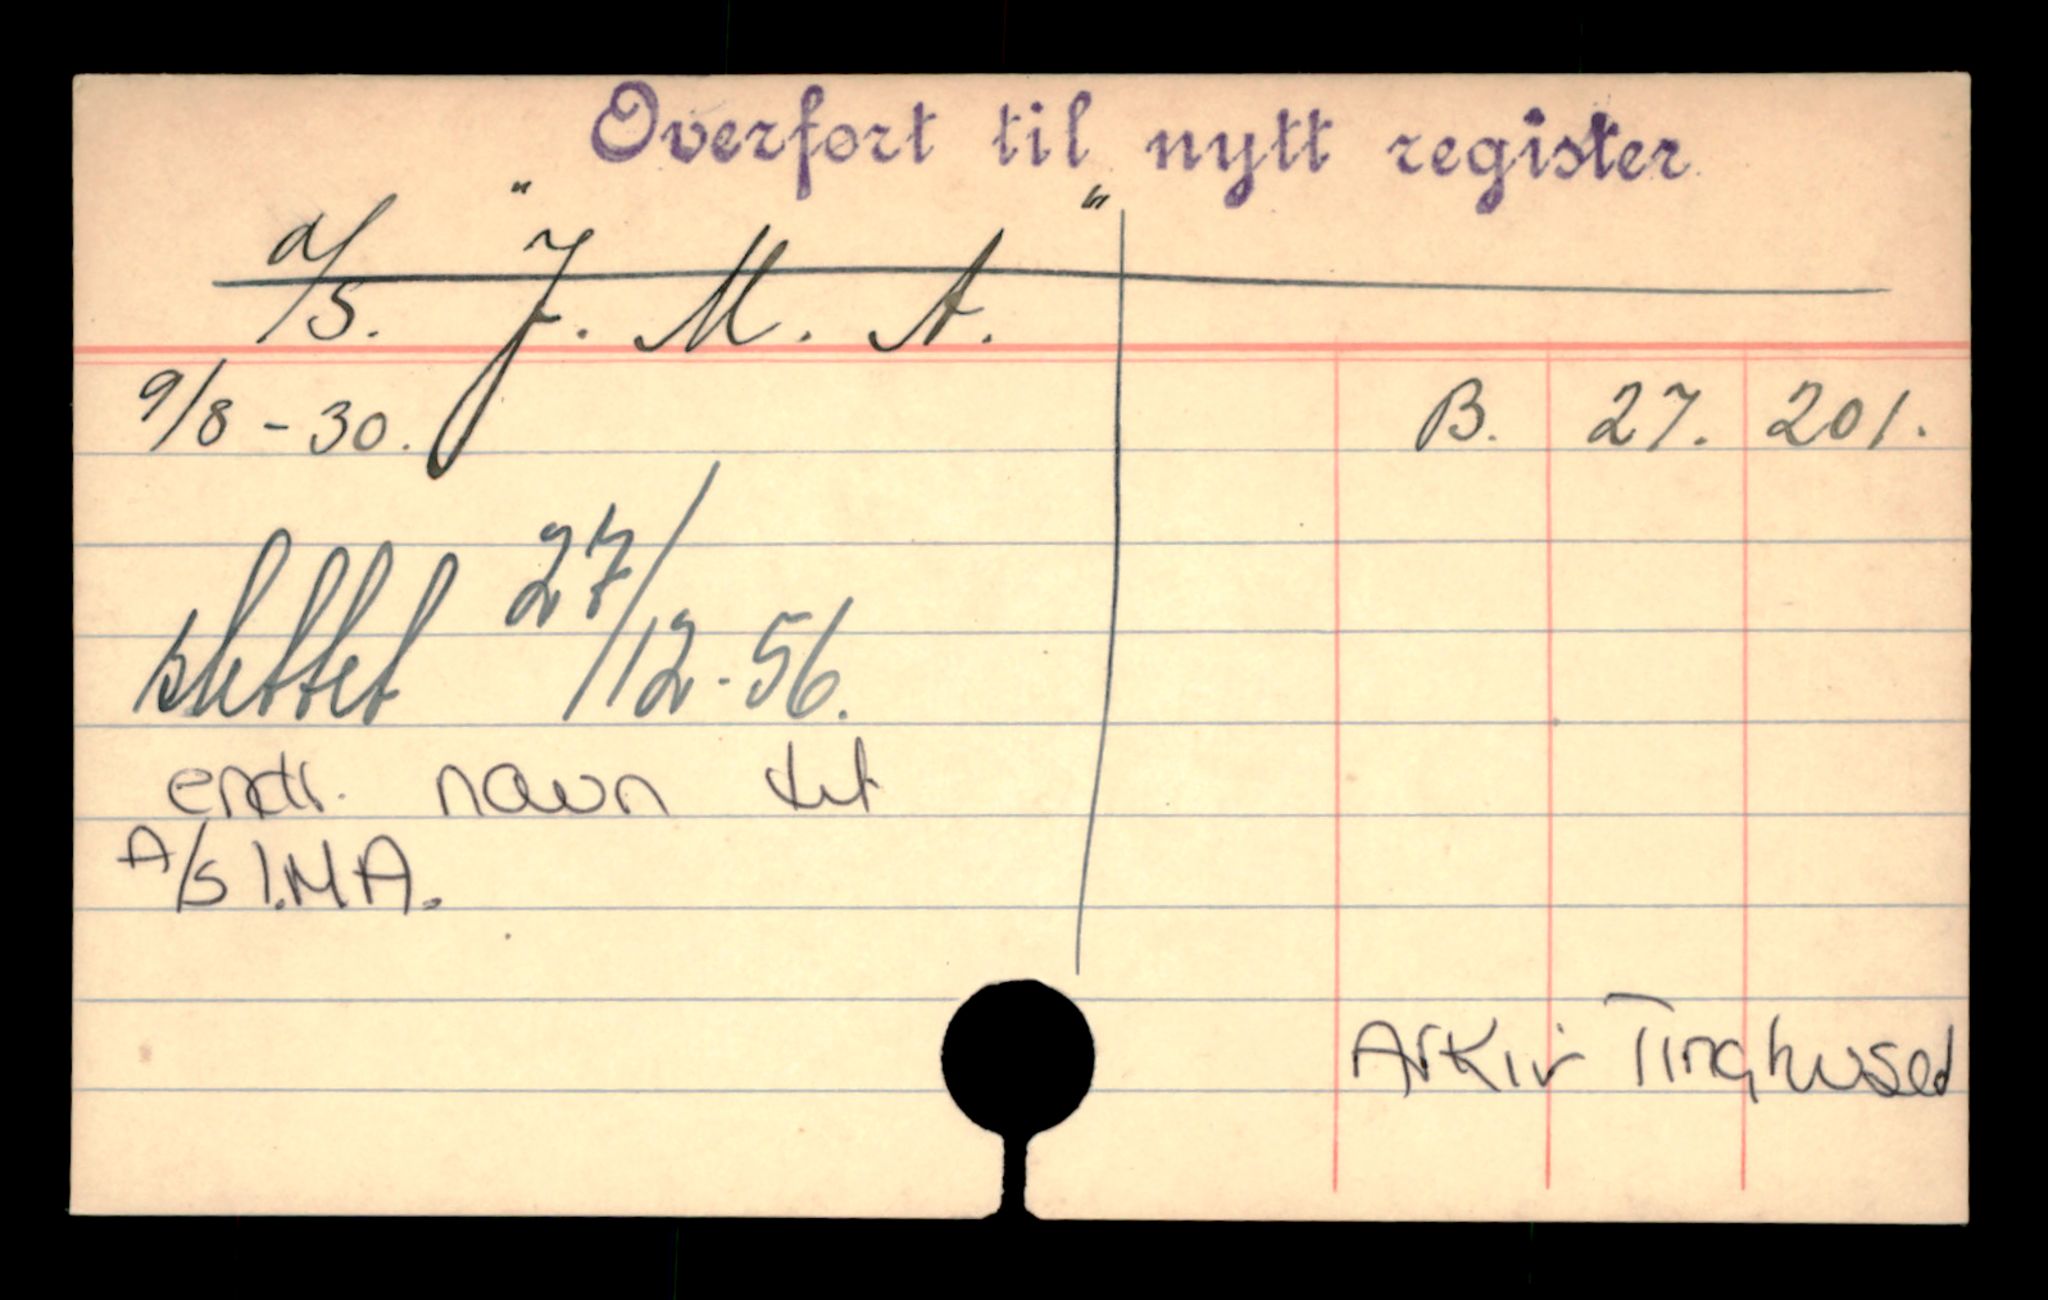 Overført til nytt register
a/s. "J. M. A."
9/8 - 30. B. 27. 201.
slettet 27/12-56.
endr. navn til
A/S I.M.A.
Arkiv Tinghuset